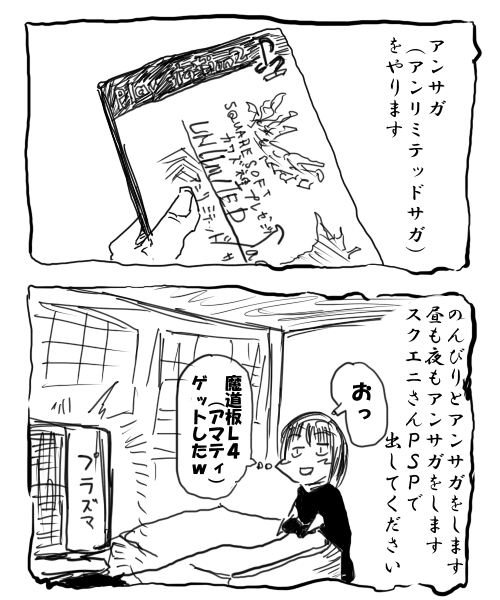 アンサガ
(アンリミテッドサガ)
をやります
PlayStation2
SQUARESOFT
UNLIMITED
のんびりとアンサガをします
昼も夜もアンサガをします
スクエニさんPSPで
出してください
おっ
魔道板L4
(アマティ)
ゲットしたw
プラズマ